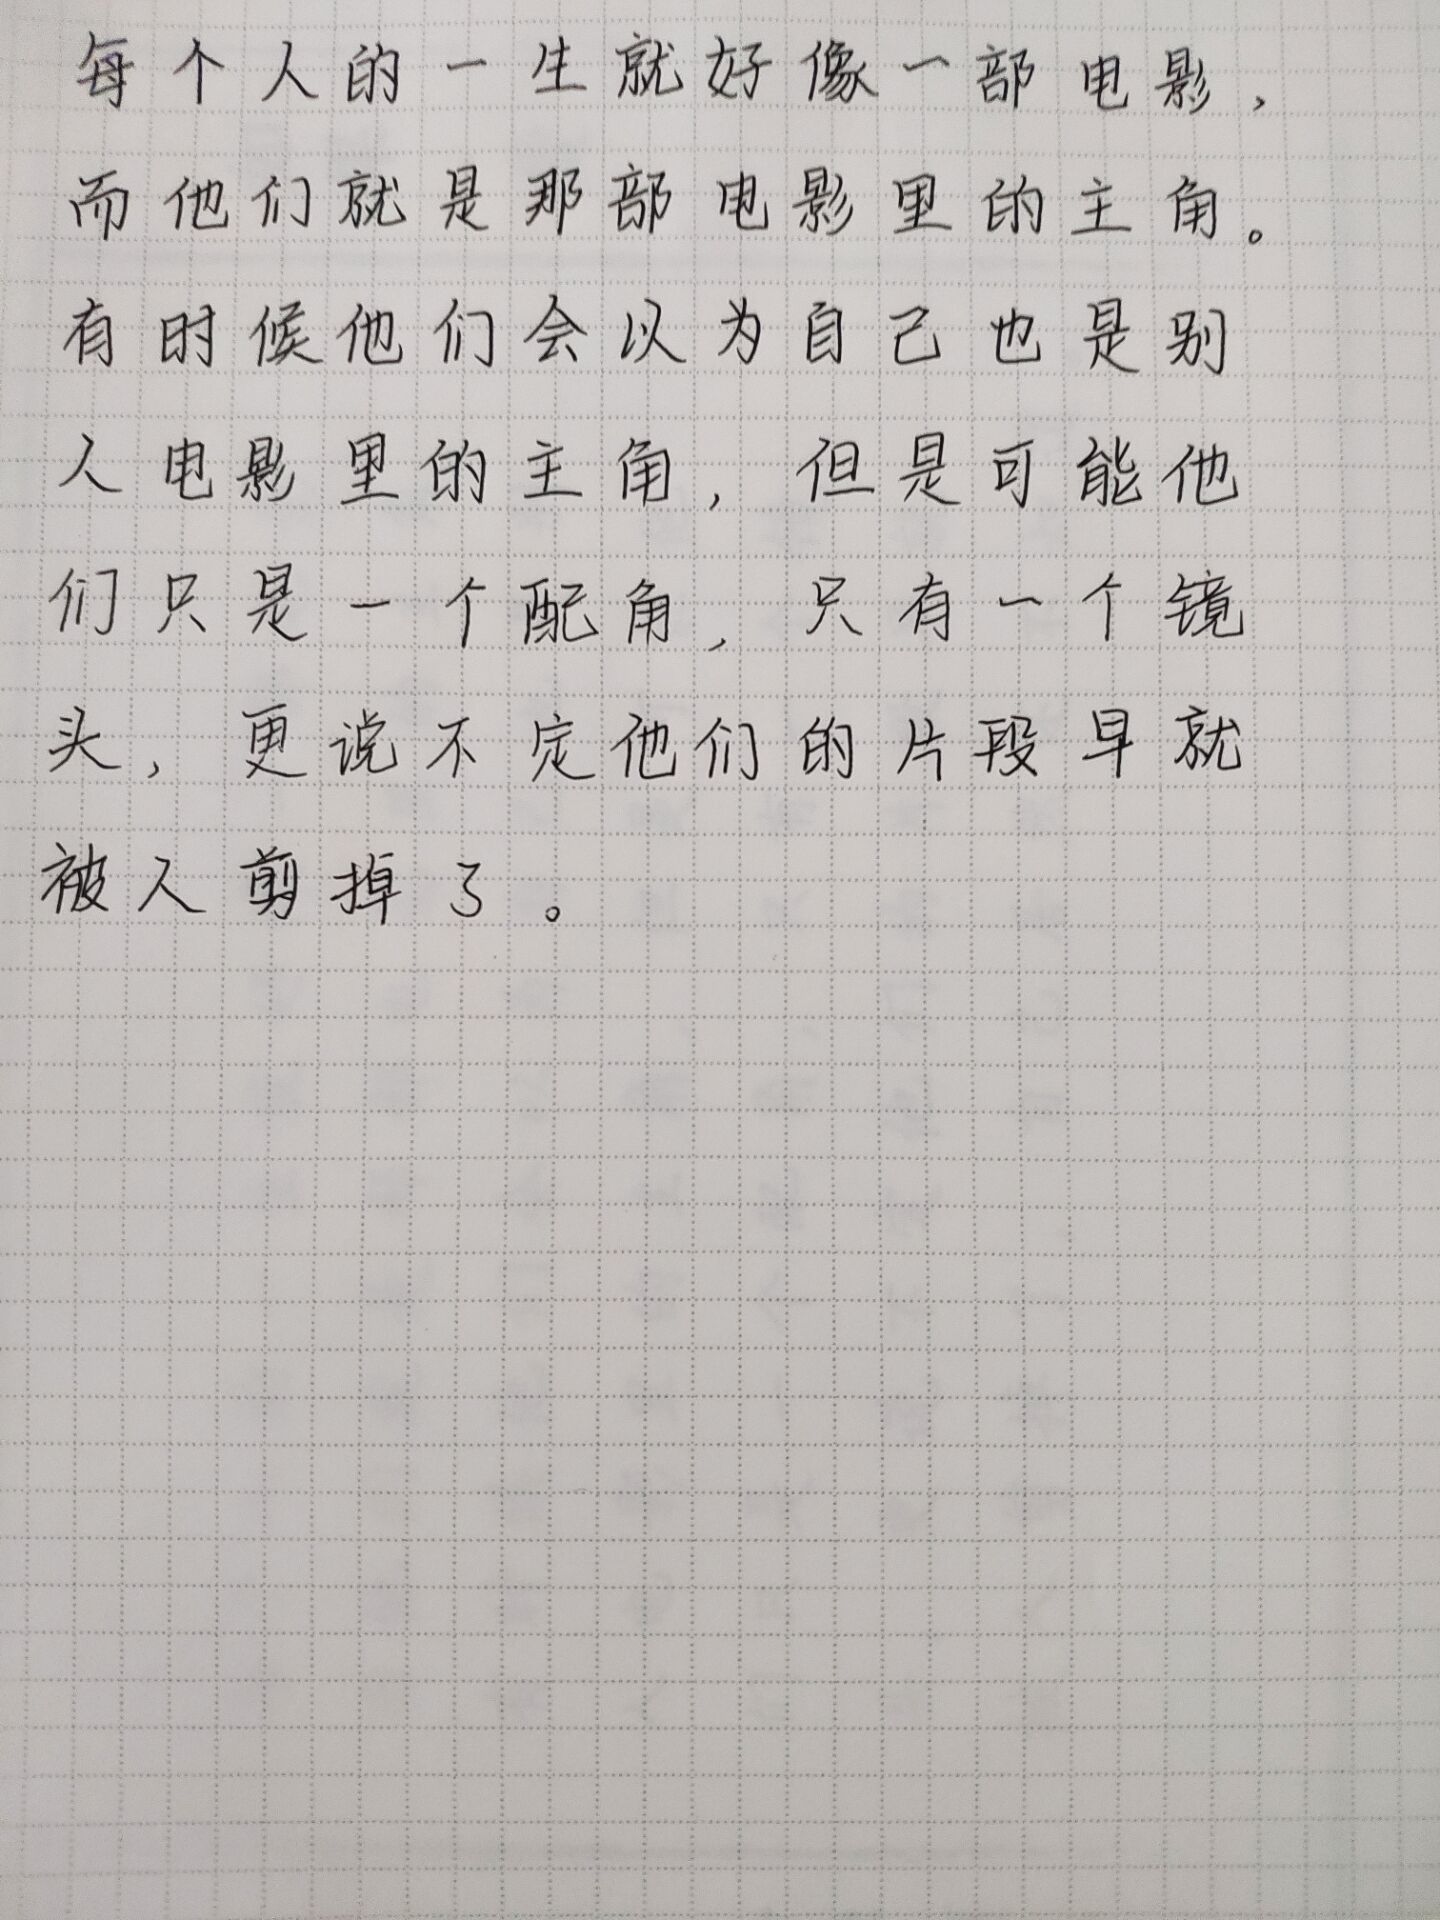 每个人的一生就好像一部电影，
而他们就是那部电影里的主角。
有时候他们会以为自己也是别
人电影里的主角，但是可能他
们只是一个配角，只有一个镜
头，更说不定他们的片段早就
被人剪掉了。